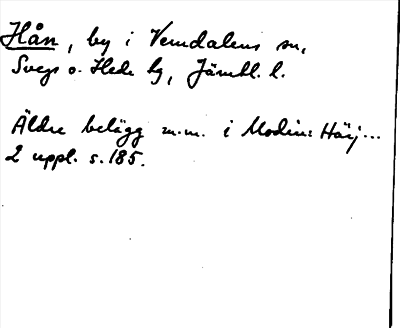 Hån, by i Vemdalens sn,
Svegs o. Hede tg, Jämtl. l.
Äldre belägg m.m. i Modin: Härj...
2 uppl. s. 185.